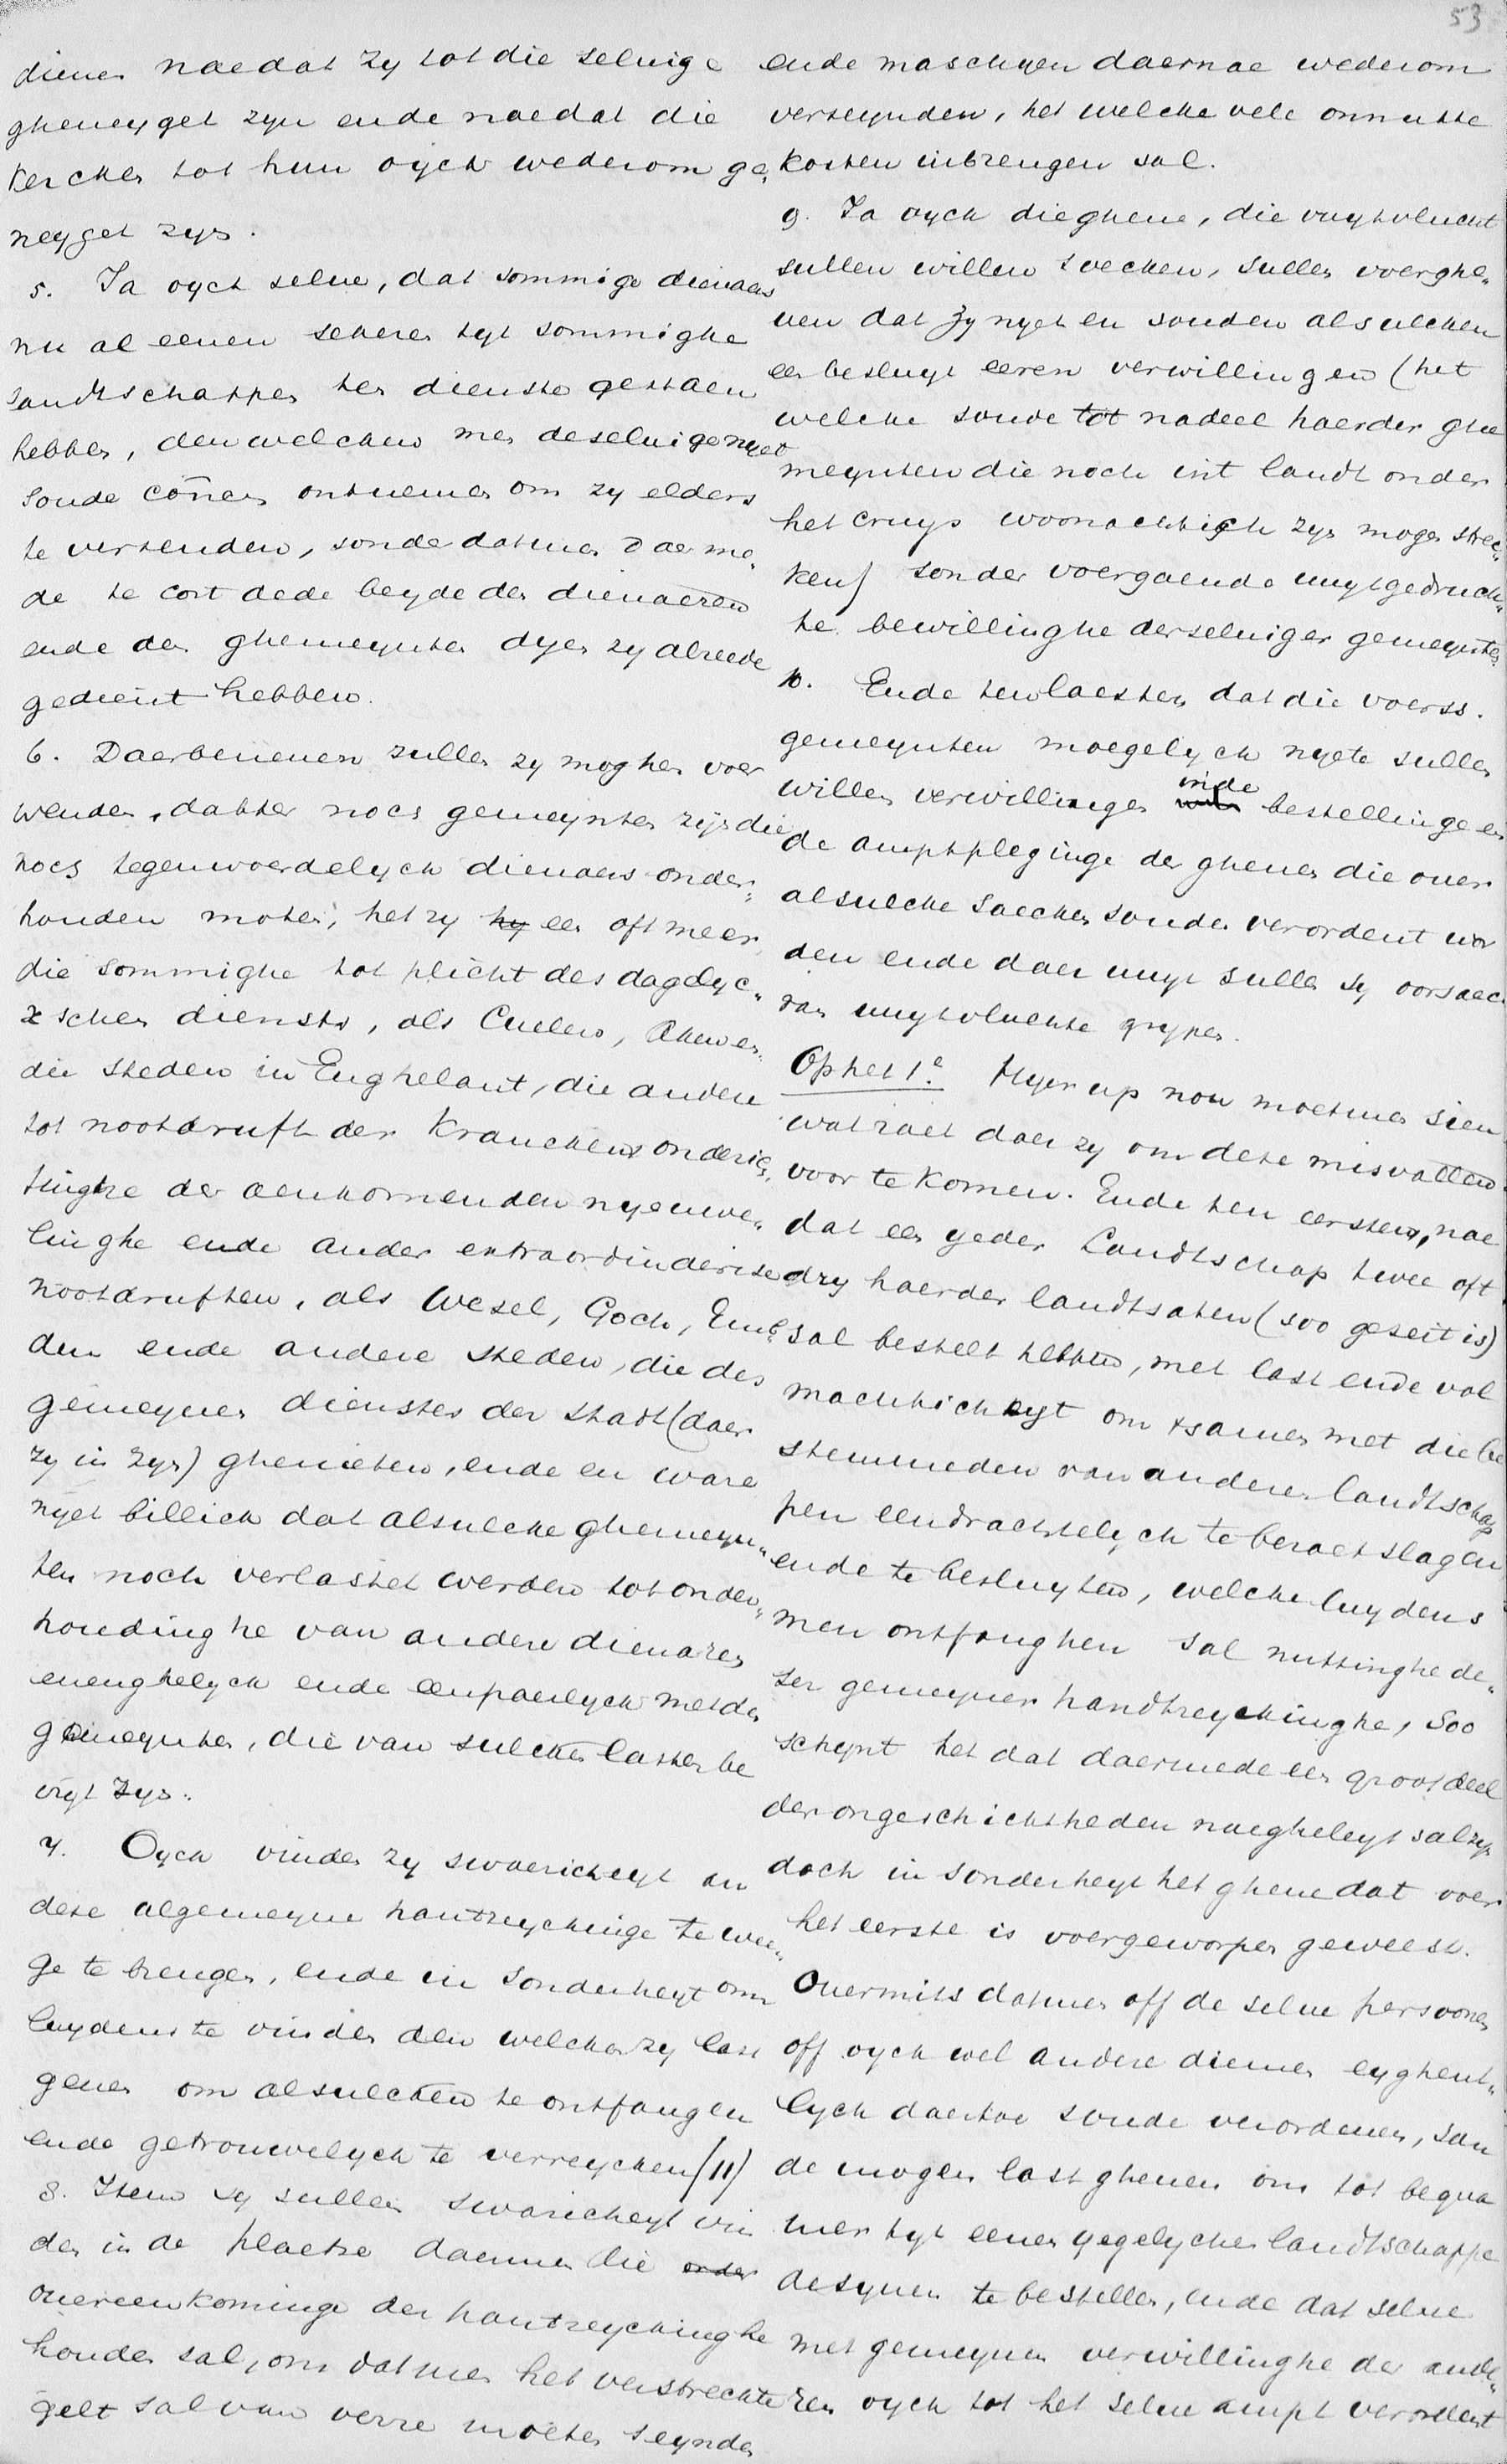 53
dienen naedat zy tot die seluige
gheneyget zyn ende naedat die
Kercken tot hun oyck wederom ge„
neyget zyn.
5. Ja oyck selue, dat sommige dienaers
nu al eenen sekeren tyt sommighe
landtschappen ten dienste gestaen
hebben, den welcken men deseluige nyet
soude coñen ontnemen om zy elders
te versenden, sonde datmen daer me„
de te cort dede beyde den dienaeren
ende den ghemeynten dyen zy alreede
gedient hebben.
6. Daerbeneuen zullen zy moghen voer
wenden, datter noch gemeynten zijn die
noch tegenwoerdelyck dienaers onder„
houden moten, het zy een oft meer
die sommighe tot plicht des dagelyc„
xschen diensts, als Cuelen, Aken en
die steden in Enghelant, die andere
tot nootdruft der Krancken onderic„
tinghe der aenkomenden nyeuwe„
linghe ende ander extraordinderise
nootdruften, als Wesel, Goch, Emb„
den ende andere steden, die des
gemeynen dienstes der stadt (daer
zy in zyn) ghenieten, ende en ware
nyet billick dat alsulcke ghemeyn„
ten noch verlastet werden tot onder„
houdinghe van andere dienaren
euenghelyck ende eenpaerlyck metden
gemeynten, die van sulcken lasten be
vryt zyn.
7. Oyck vinden zy swaericheyt an
dese algemeyne hantreychinge te wee„
ge te brengen, ende in sonderheyt om
luydens te vinden den welcken zy last
geuen om alsulcken te ontfangen
ende getrouwelyck te verreycken (11)
8. Item sy sullen swaricheyt vin
den in de plaetse daermen die
ouereenkominge der hantreychinghe
houden sal, om datmen het verstreckte
gelt sal van verre moeten seynden
ende maschyen daernae wederom
verseynden, het welcke vele onnutte
kosten inbrengen sal.
9. Ja oyck dieghene, die vuytvlucht
sullen willen soecken, sullen voerghe„
uen dat zy nyet en souden alsulcken
een besluyt eeren verwillingen (het
welcke soude tot nadeel haerder ghe
meynten die noch int landt onder
het cruys woonachtich zyn mogen strec„
ken) sonder voergaende uuytgedruck„
te bewillinghe derseluiger gemeynten
10. Ende ten laesten dat die voerss.
gemeynten moegelyck nyete sullen
willen verwillingen inde bestellinge en
de amptpleginge der ghener die ouer
alsulcke saecken souden verordent wor
den ende daer uuyt sullen sy oorsaec
van uuytvluchte grypen.
Op het 1e. Hyer up nou moetmen sien
wat raet daer zy om dese misvallen
voor te komen. Ende ten eersten, nae
dat een yeder Landtschap twee oft
dry haerder landtsaten (soo geseit is)
sal bestelt hebben, met last ende vol
machticheyt om tsamen met die be
stemmeden van anderen landtschap
pen eendrachtelyck te beraetslagen
ende te besluyten, welcke luydens
men ontfanghen sal nuttinghe de„
ser gemeyner handtreyckinghe, soo
schynt het dat daermede een groot deel
der ongeschicktheden naegheleyt sal zyn
doch in sonderheyt het ghene dat voer
het eerste is voergeworpen geweest.
Ouermits datmen off de selue persoonen
off oyck wel andere diemen eyghent„
lyck daertoe soude verordenen, sou
de mogen last gheuen om tot bequa
mer tyt eenen yegelycken landtschappe
desynen te bestellen, ende dat selue
met gemeynen verwillinghe der ande„
ren oyck tot het selue ampt verordent